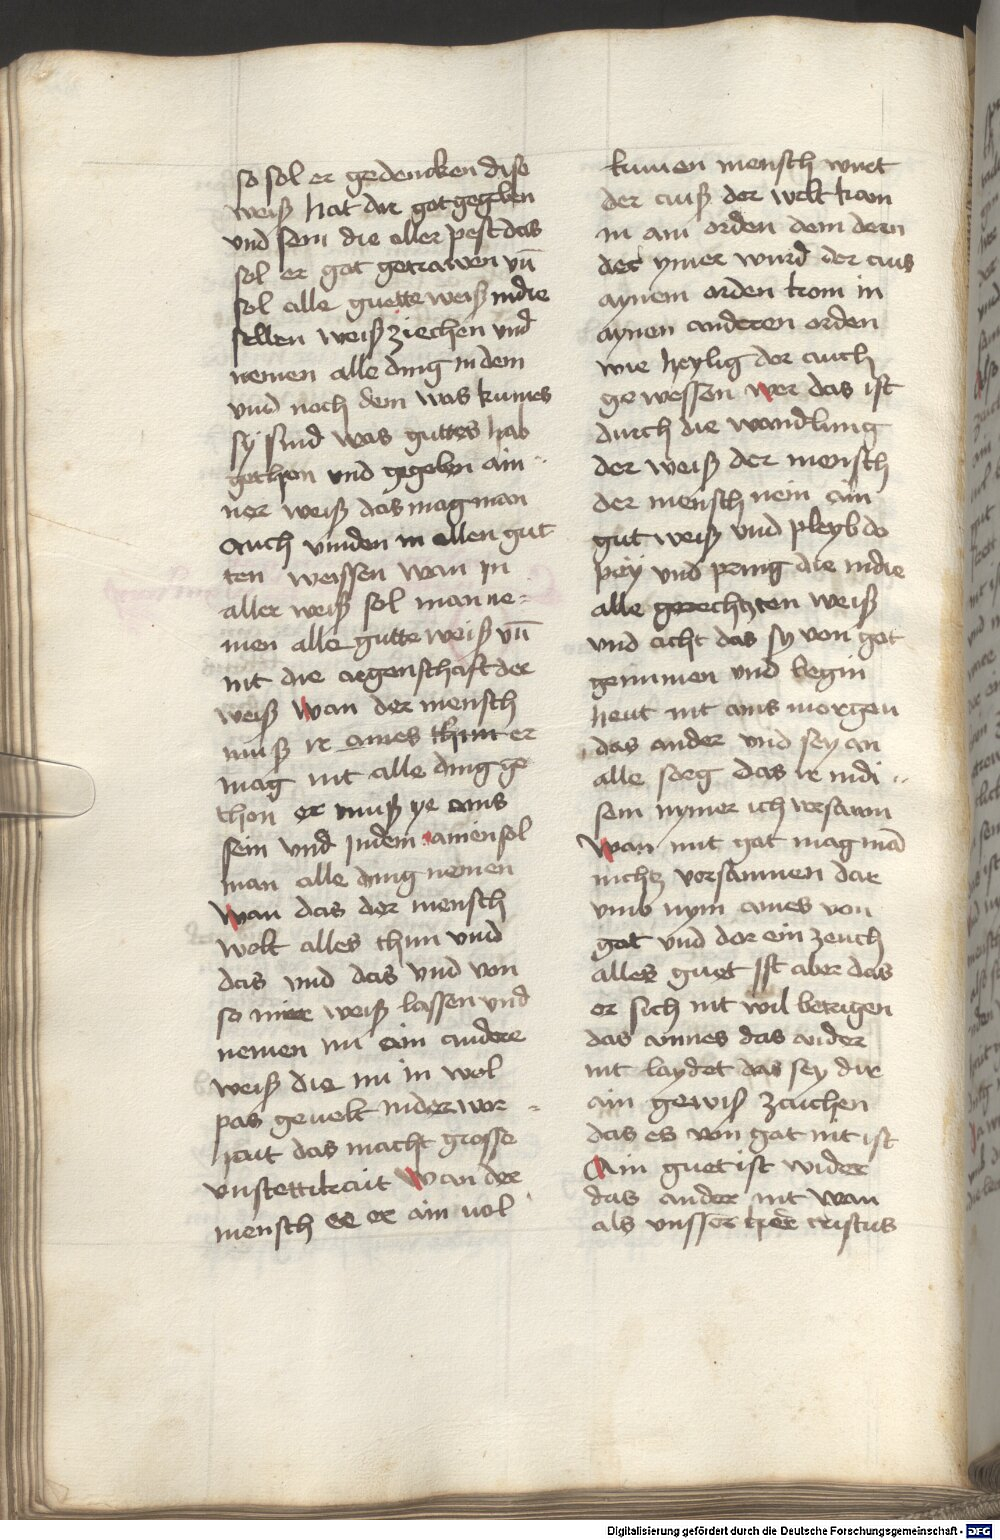 so sol er gedencken dise
weiß hat dir got gegeben
und sein die aller pest das
sol er got getrawen vn̄
sol alle guette weiß in die
selben weiß ziechen und
nemen alle ding in dem
vnd noch dem was kumes
sy sind was guttes hab
gethon und gegeben ain
ner weiß das mag man
auch vinden in allen gut
ten weissen wan in
aller weiß sol man ne=
men alle gutte weiß vn̄
nit die aegenschaft der
weiß Wan der mensch
muß ir aines thun er
mag nit alle ding ge
thon er muß ye ains
sein und in dem ainen sol
man alle ding nemen
Wan das der mensch
wolt alles thun vnd
das vnd das vnd von
so mier weiß lassen und
nemen nu ain andere
weiß die nu in wol
pas geuelt in der wor =
hait das macht grosse
vnstettikait Wan der
mensch ee er ain vol
kumen mensch wirt
der auß der welt kam
in ain orden dem dern
der ymer wurd der aus
aynem orden kom in
aynen anderen orden
wie heylig der auch
gewessen wer das ist
durch die wandlung
der weiß der mensch
der mensch nem ain
gut weiß vnd pleyb do
pey vnd pring die in die
alle gerechten weiß
vnd acht das sy von got
genumen vnd begin
heut nit ains morgen
das ander vnd sey an
alle sorg das ir in di
sem nymer ich versaum
Wan mit got mag mā
nichtz versaumen dar
vmb nym aines von
got vnd dor ein zeuch
alles guet Ist aber das
er sich nit wil betrigen
das ainnes das ander
nit laydet das sey dir
ain gewiß zaichen
das es von got nit ist
Ain guet ist wider
das ander nit wan
als vnsser her cristus
Digitalisierung gefördert durch die Deutsche Forschungsgemeinschaft - DFG